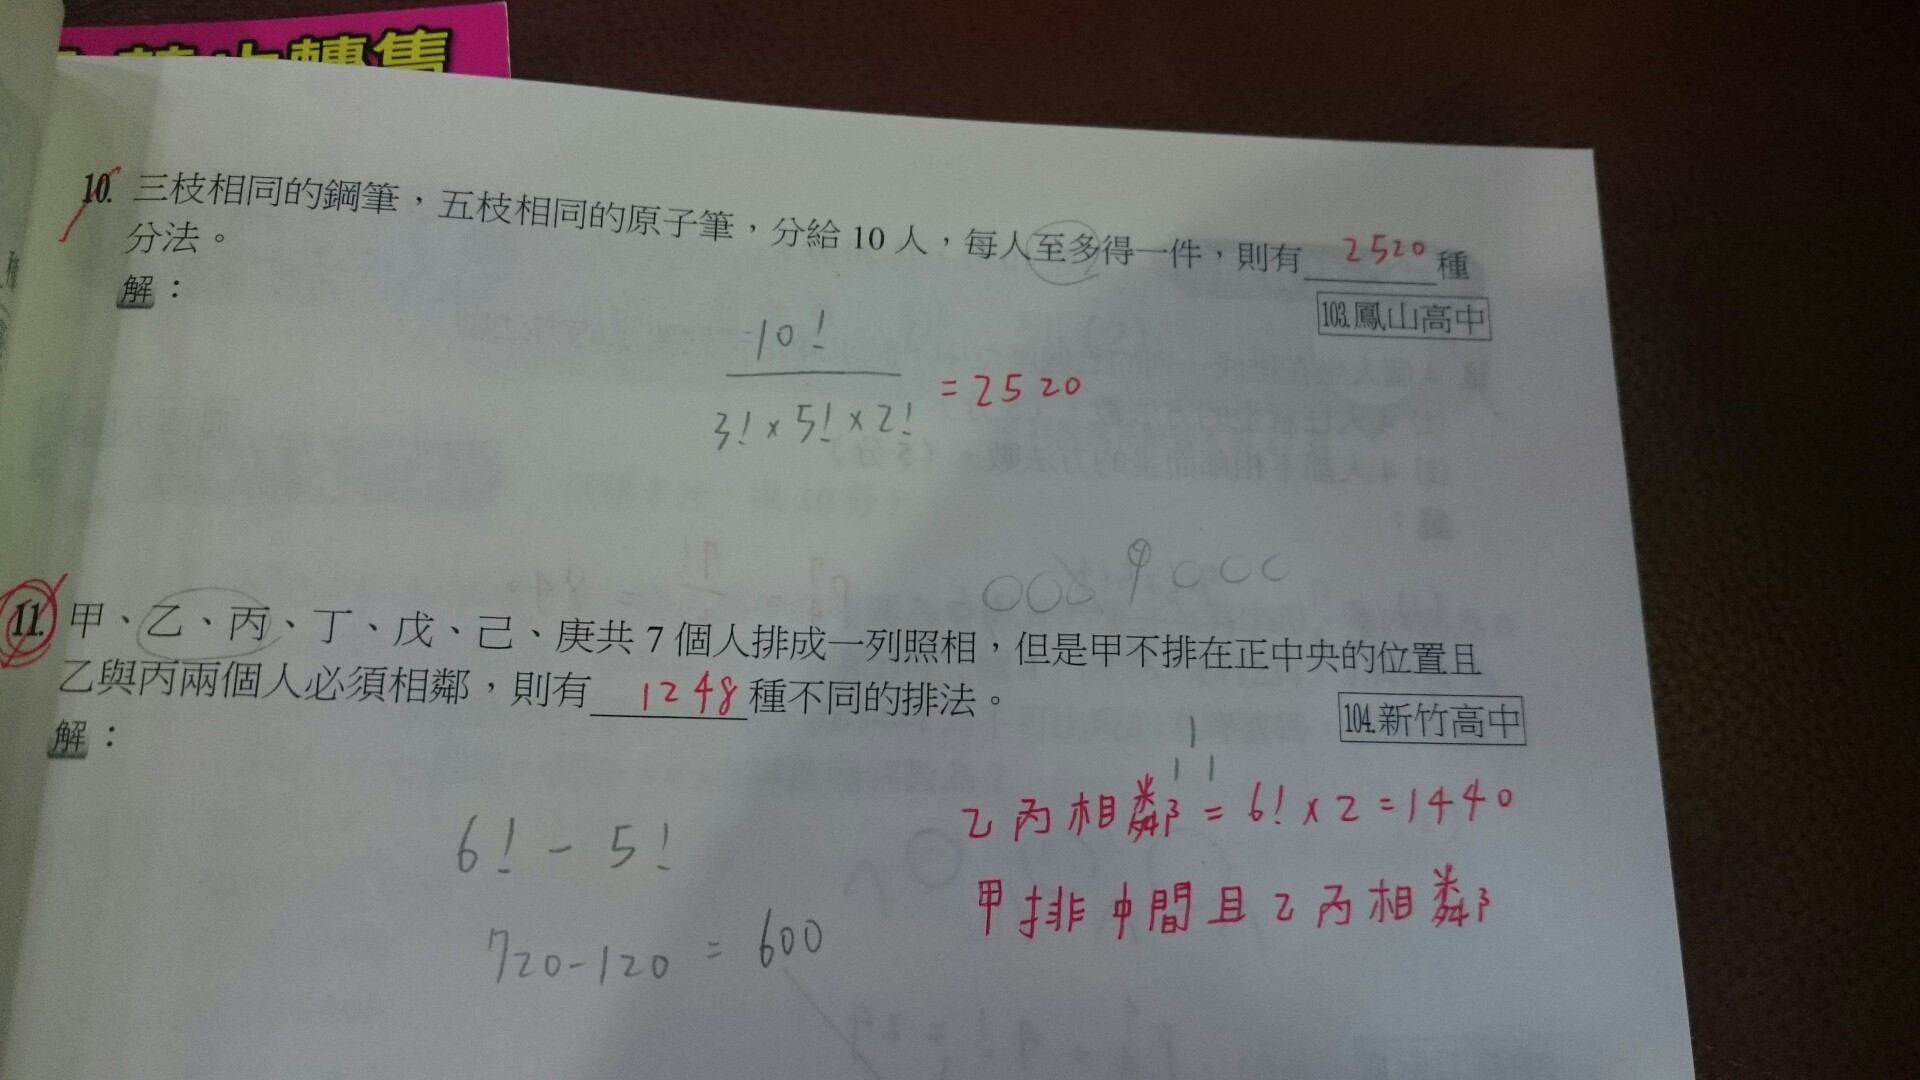 轉售
10. 三枝相同的鋼筆，五枝相同的原子筆，分給 10 人，每人至多得一件，則有 2520 種
分法。
103.鳳山高中
解：
10!
3! × 5! × 2!
= 2520
11. 甲、乙、丙、丁、戊、己、庚共 7 個人排成一列照相，但是甲不排在正中央的位置且
乙與丙兩個人必須相鄰，則有 1248 種不同的排法。
104.新竹高中
解：
6! - 5!
720-120 = 600
乙丙相鄰 = 6! × 2 = 1440
甲排中間且乙丙相鄰